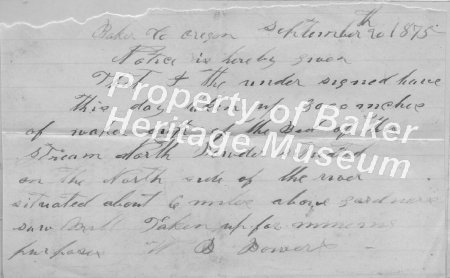 Baker Co Oregon September 20th 1875
Notice is hereby given
That I the under signed have
this day taken up 300 inches
of water out of the
stream North Powder
on the North side of the river
situated about 6 miles above gardners
saw Mill Taken up for mining
purposes W B Bowers
Property of Baker
Heritage Museum